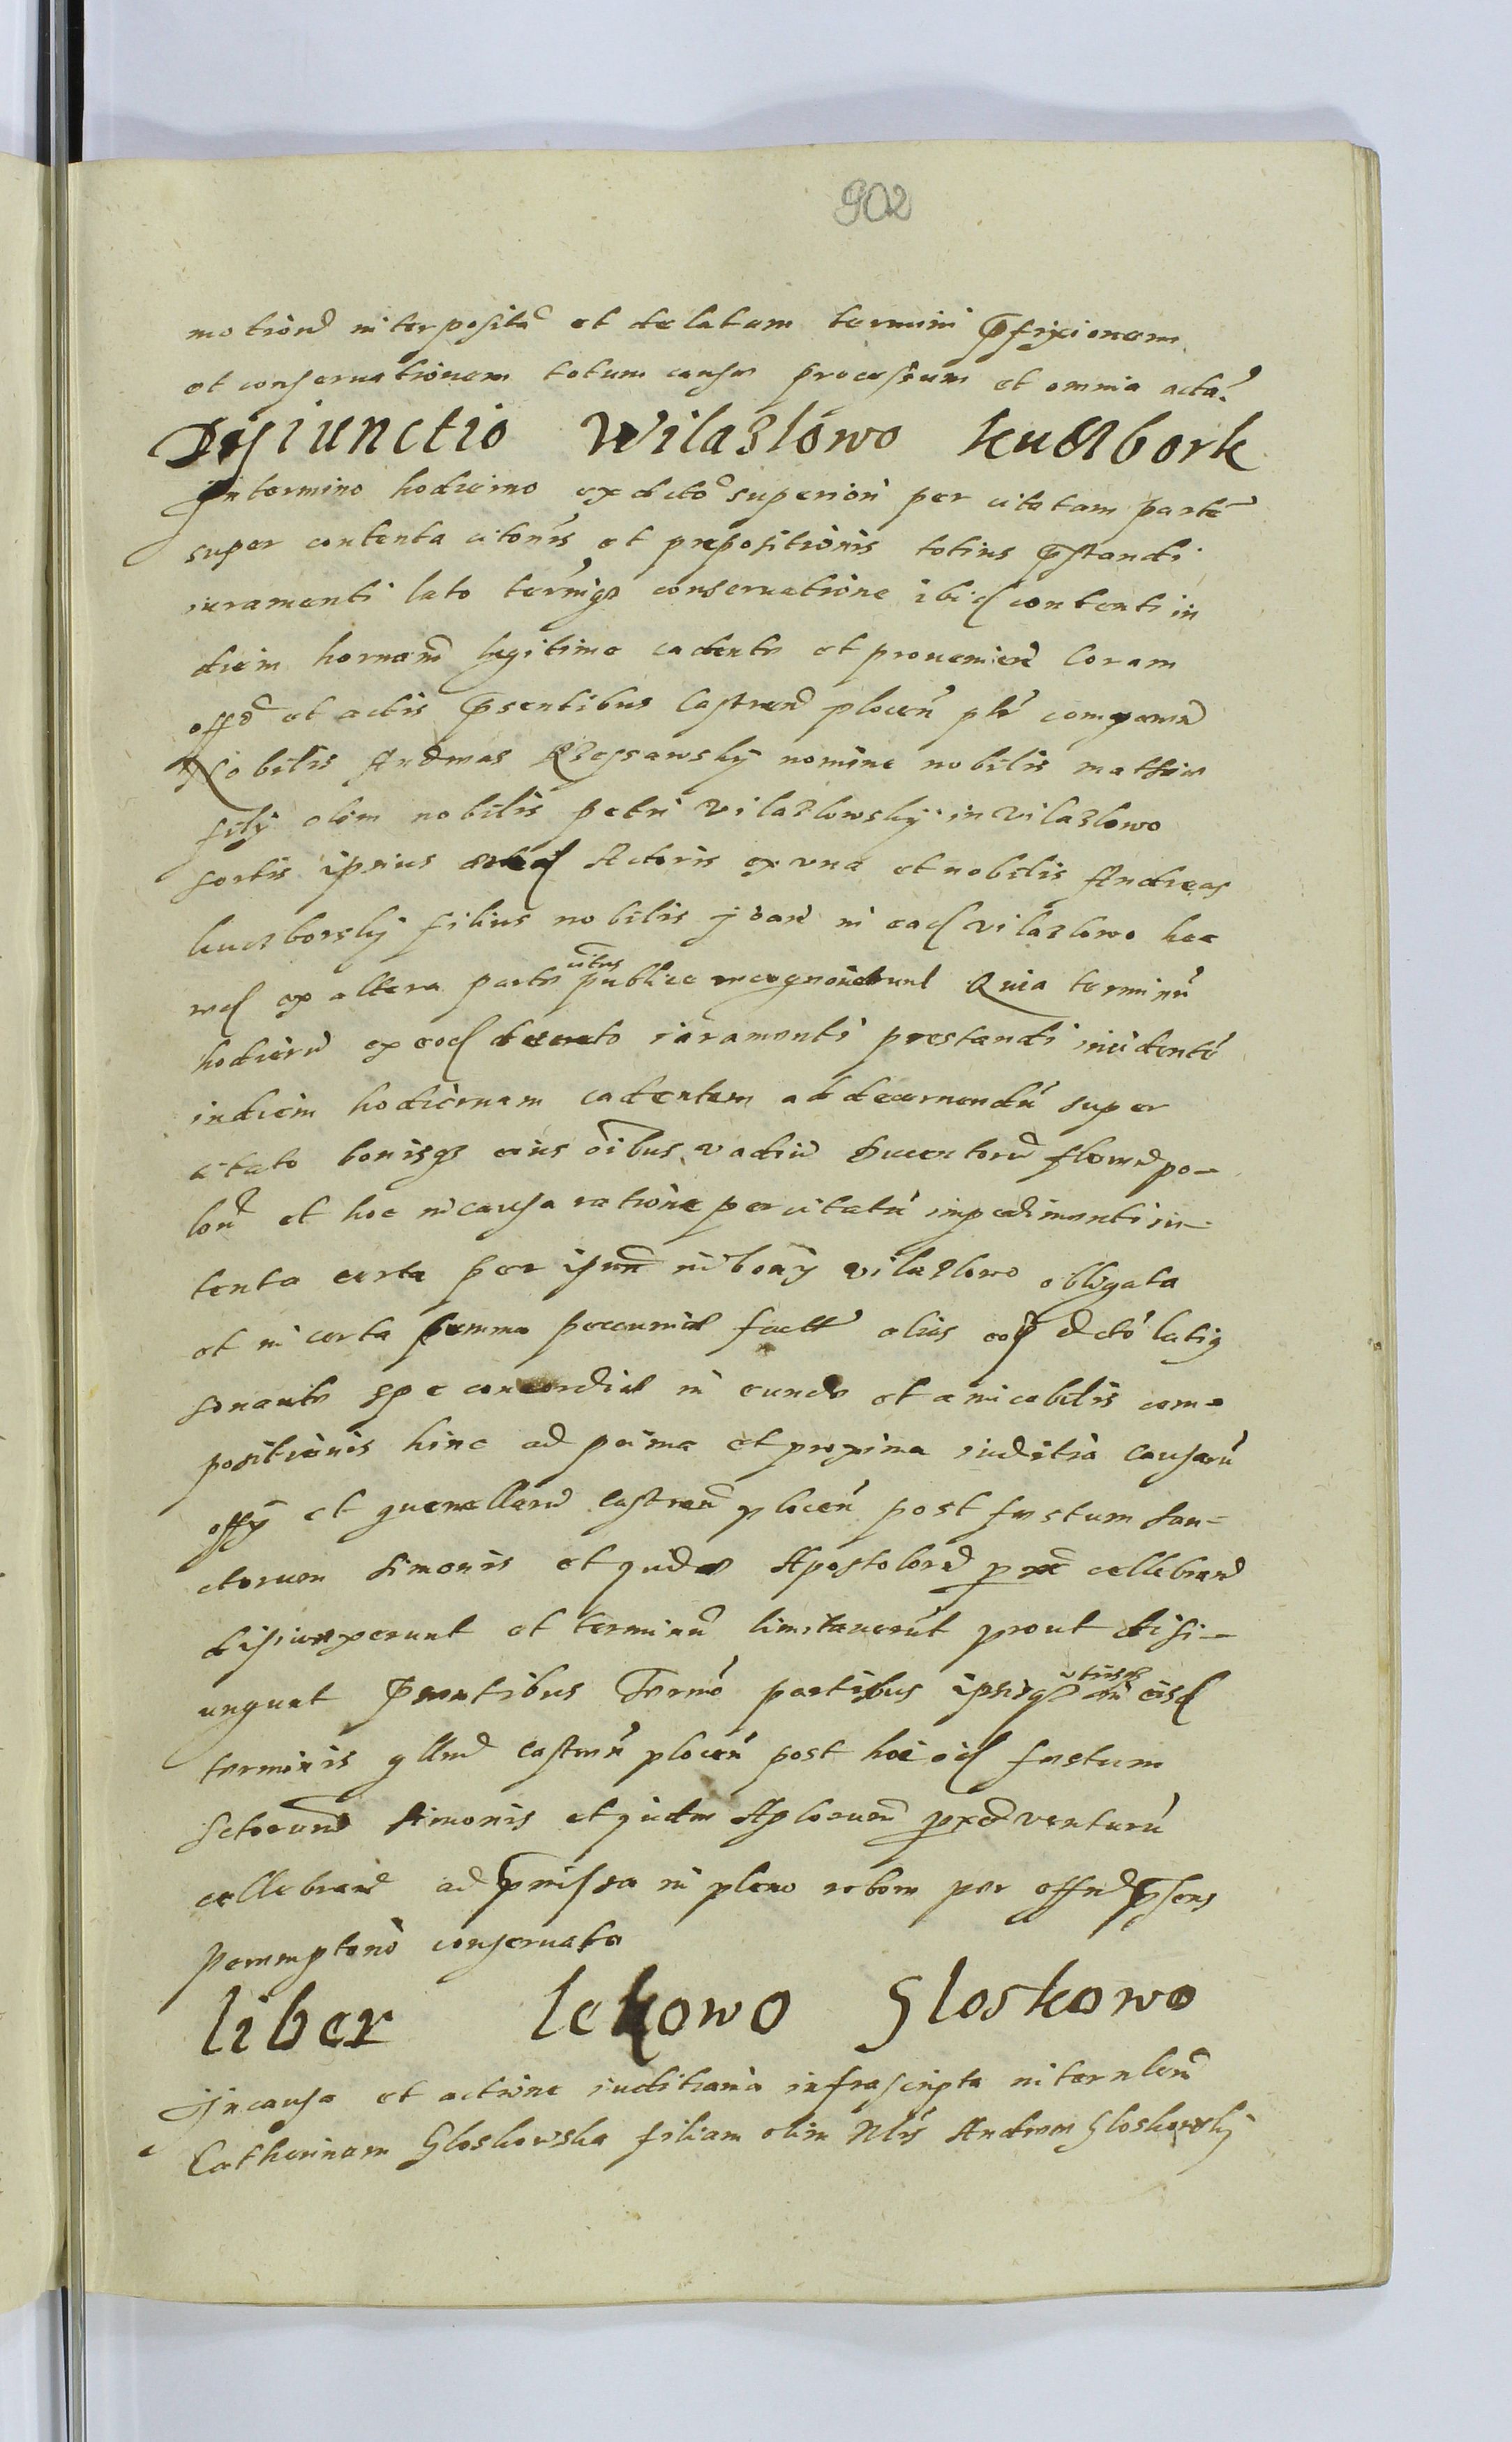 902
motionẽ interposita et delatam termini p̃fixionem
et conseruationem totum causæ processum et omnia acta.
Disiunctio Wilazlowo kuczbork
In termino hodierno ex dcto superiori per citatam partẽ
super contenta citonis et propositionis totius p̃standi
iuramenti lato terminiq3 conseruatione ibid contenti in
diem hornam legitime cadente et prouenien Coram
offõ et actis p̃sentibus Castren plocen plr comparen
Nobilis Andreas nomine nobilis mathiæ
filÿ olim nobilis petri vilazlowskÿ in vilazlowo
sortis ipsius Actoris ex vna et nobilis Andreas
kuczborskÿ filius nobilis joan in ead vilazlowo hæ
red ex altera parte citus publice recognouerunt Quia terminũ
hodiern ex eod decreto iuramenti prestandi incidentẽ
in diem hodiernam cadentem ad decernendũ super
citato bonisq3 eius oĩbus vadiũ Ducentorũ floren po-
lon et hoc in causa ratione per citatũ impedimenti in-
tenta certa per ipsum in bonis vilazlowo obligata
et in certa summa pecuniæ fact alias eod dcto latiꝰ
sonante spe concordiæ in eunde et amicabilis com-
positionis hinc ad prima et proxima iuditia Causarũ
offÿ et querellarũ Castren plocen post festum San-
ctorum Simonis et judæ Apostolorũ prox cellebrand
disiunxerunt et terminũ limitauerũt prout disi-
ungunt p̃sentibus Termõ partibus ipsisq3 utrisq3 in eisd
terminis qllarũ castren plocen post hoc id festum
Sctorum Simonis et judæ Aplorum prox venturũ
cellebrand ad p̃missa in pleno robore per offm p̃sens
peremptorio conseruato
liber lekowo Gloskowo
In causa et actione iuditiaria infrascripta inter nlem
Catherinam Gloskowska filiam olim Nlis Andreæ Gloskowskÿ